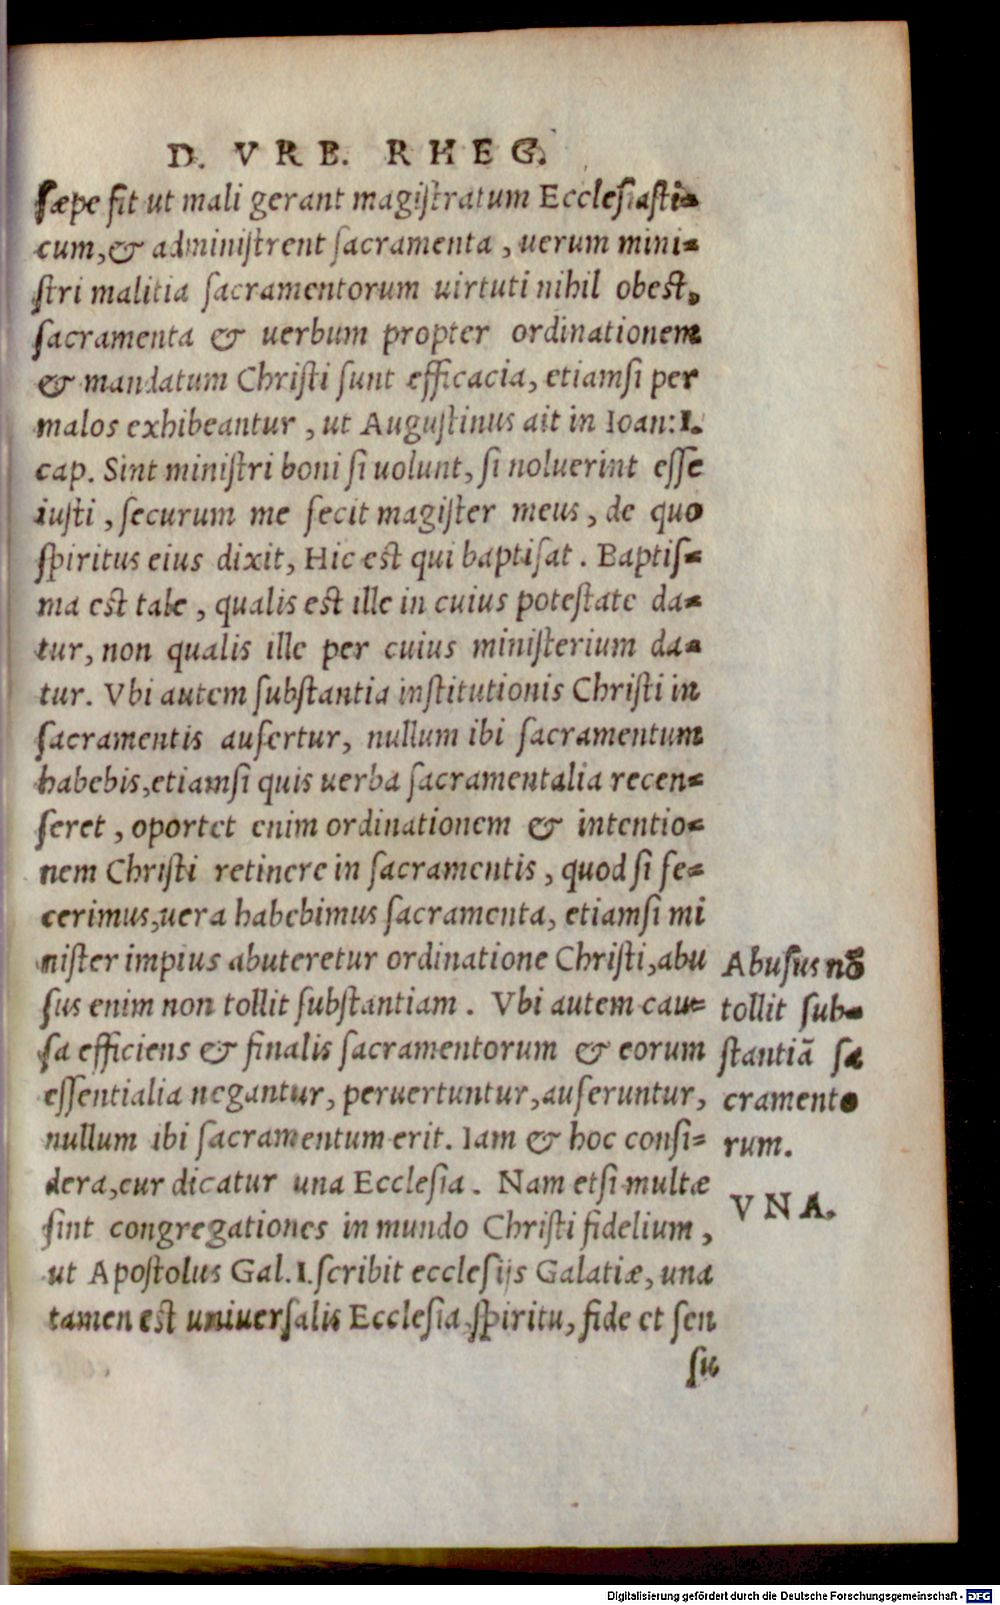 D. VRB. RHEG.
sæpe fit ut mali gerant magistratum Ecclesiasti=
cum, & administrent sacramenta, uerum mini=
stri malitia sacramentorum uirtuti nihil obest,
sacramenta & uerbum propter ordinationem
& mandatum Christi sunt efficacia, etiamsi per
malos exhibeantur, ut Augustinus ait in Ioan: 1.
cap. Sint ministri boni si uolunt, si noluerint esse
iusti, securum me fecit magister meus, de quo
spiritus eius dixit, Hic est qui baptisat. Baptis=
ma est tale, qualis est ille in cuius potestate da=
tur, non qualis ille per cuius ministerium da=
tur. Vbi autem substantia institutionis Christi in
sacramentis aufertur, nullum ibi sacramentum
habebis, etiamsi quis uerba sacramentalia recen=
seret, oportet enim ordinationem & intentio=
nem Christi retinere in sacramentis, quod si fe=
cerimus, uera habebimus sacramenta, etiamsi mi
nister impius abuteretur ordinatione Christi, abu
sus enim non tollit substantiam. Vbi autem cau=
sa efficiens & finalis sacramentorum & eorum
essentialia negantur, peruertuntur, auferuntur,
nullum ibi sacramentum erit. Iam & hoc consi=
dera, cur dicatur una Ecclesia. Nam etsi multæ
sint congregationes in mundo Christi fidelium,
ut Apostolus Gal. 1. scribit ecclesijs Galatiæ, una
tamen est uniuersalis Ecclesia, spiritu, fide et sen
su
Abusus nō
tollit sub=
stantiā sa
cramento
rum.
VNA.
Digitalisierung gefördert durch die Deutsche Forschungsgemeinschaft - DFG